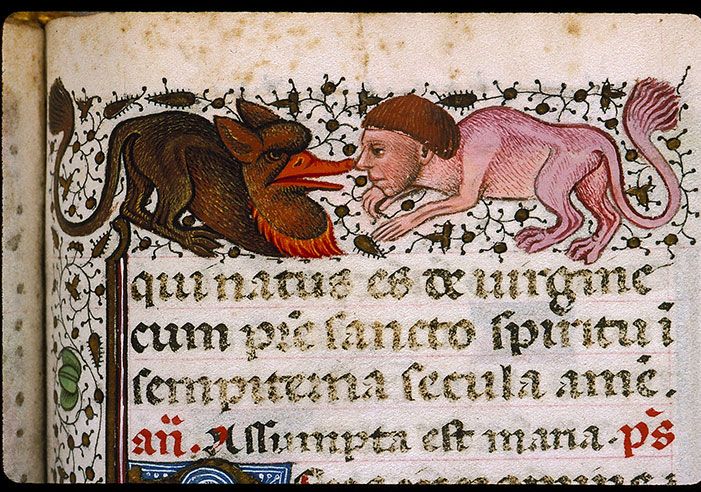 qui natus es de uirgine
cum pr̄e sancto spiritu i
sempiterna secula amē.
an̄. Assumpta est maria. p̄s